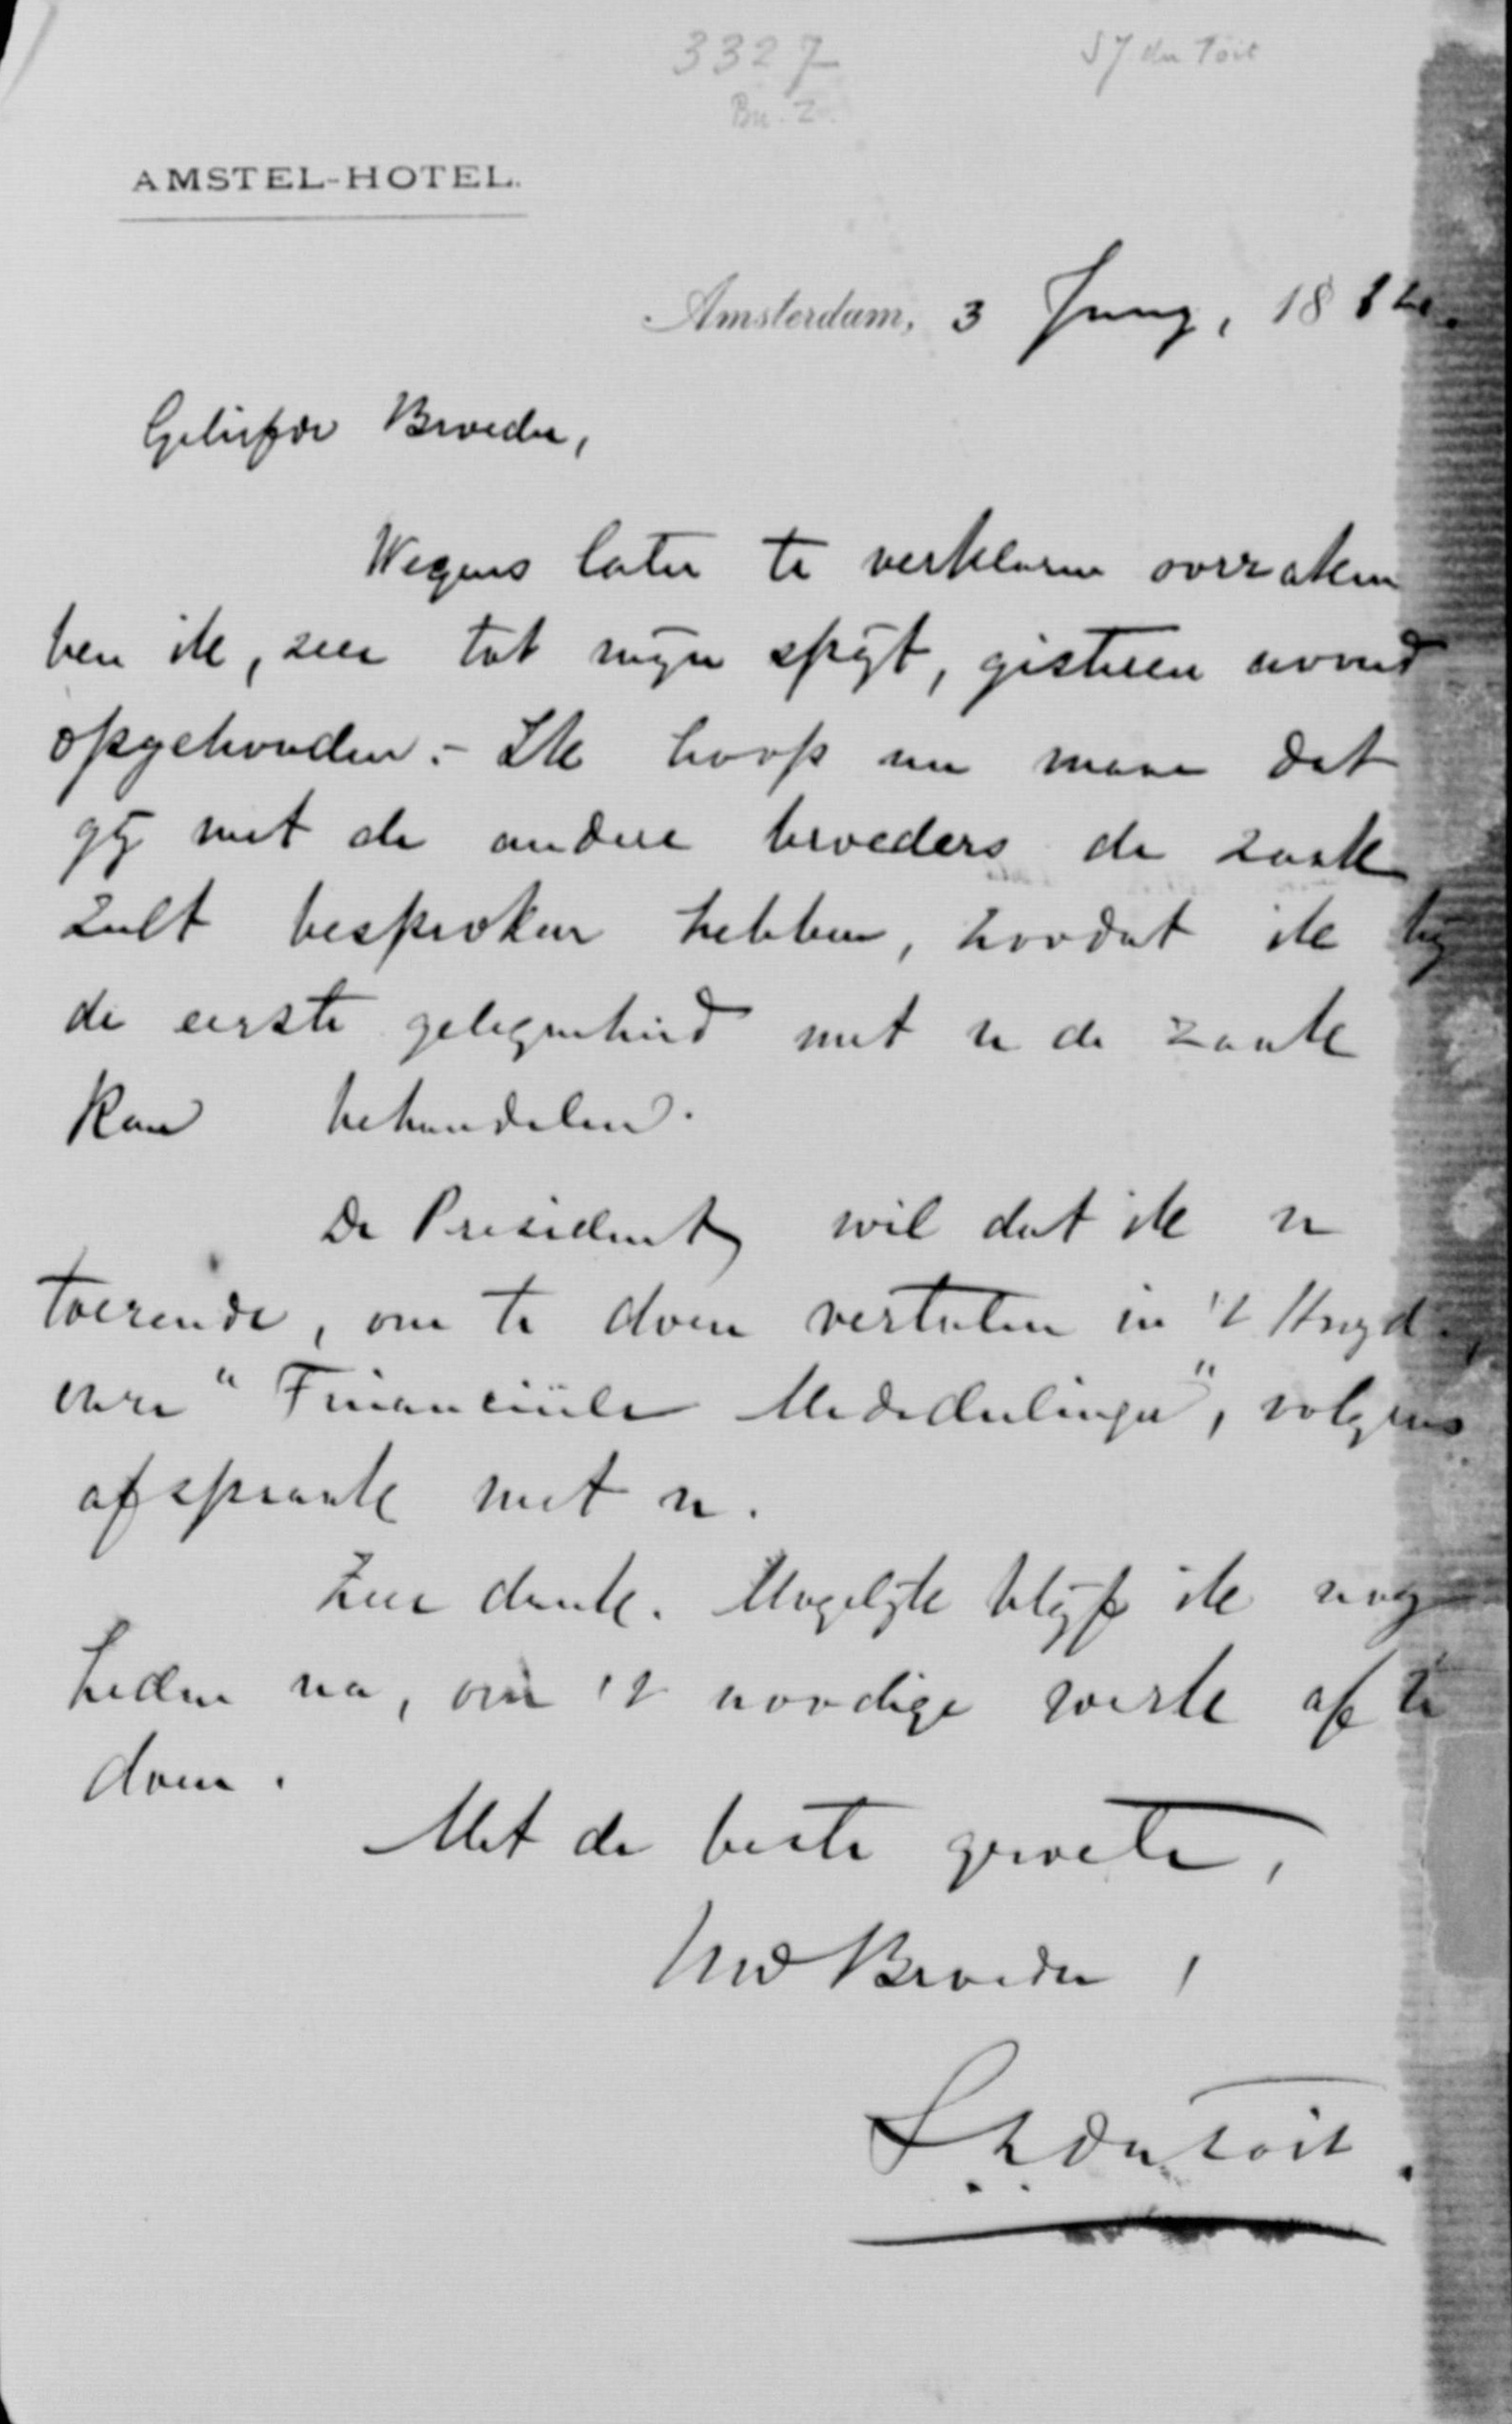 3327
SJ du Toit
Bu. 2.
AMSTEL-HOTEL.
Amsterdam, 3 Juny, 188
Geliefde Broeder,
Wegens later te verklaren oorzaken
ben ik, zeer tot mijn spijt, gisteren avond
opgehouden. - Ik hoop nu maar dat
gij met de andere broeders de zaak
zult besproken hebben, zoodat ik bij
de eerste gelegenheid met u de zaak
kan behandelen.
De President wil dat ik u
toezende, om te doen vertalen in 't
onze "Financiëele Mededeelingen", volgens
afspraak met u.
Zeer dank. Mogelijk blijf ik nog
heden na, om 't noodige werk af te
doen.
Met de beste groete,
Uw Broeder,
S J du Toit.